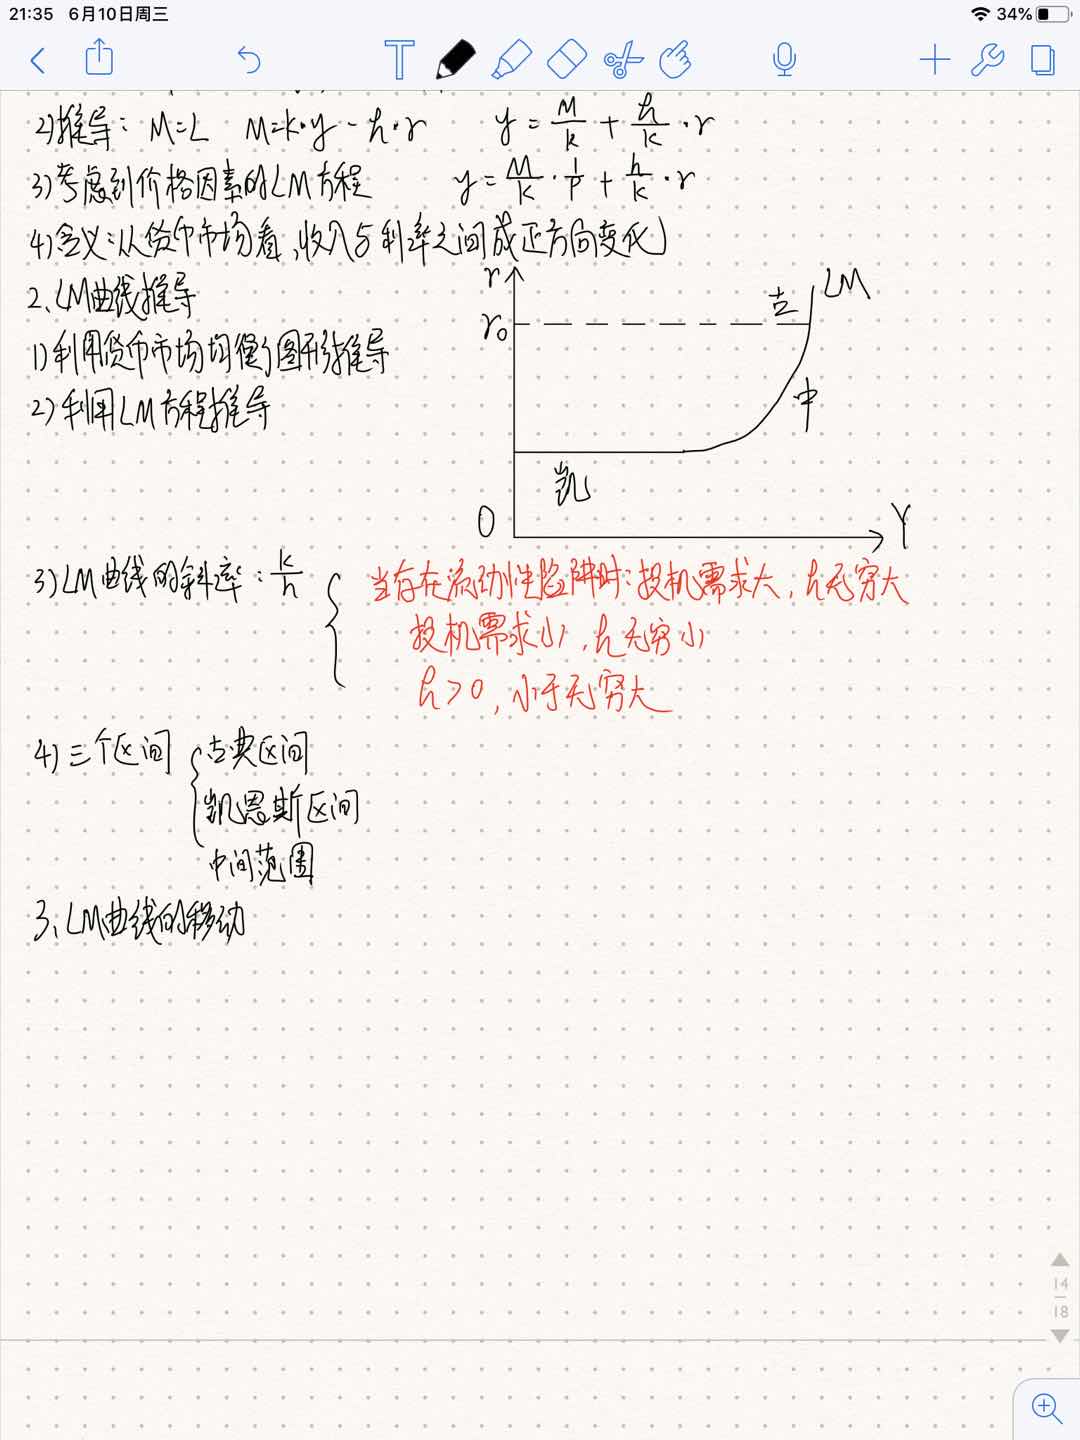 21:35 6月10日周三
34%
2)推导: M=L M=k·y-h·r y=M/k+h/k·r
3)考虑到价格因素的LM方程 y=M/k·1/P+h/k·r
4)含义:从货币市场看,收入与利率之间成正方向变化
2、LM曲线推导
1)利用货币市场均衡图形推导
2)利用LM方程推导
r
r₀
古
LM
中
凯
O
Y
3)LM曲线的斜率:k/h
当存在流动性陷阱时:投机需求大,h无穷大
投机需求小,h无穷小
h>0,小于无穷大
4)三个区间
古典区间
凯恩斯区间
中间范围
3、LM曲线的移动
14
18